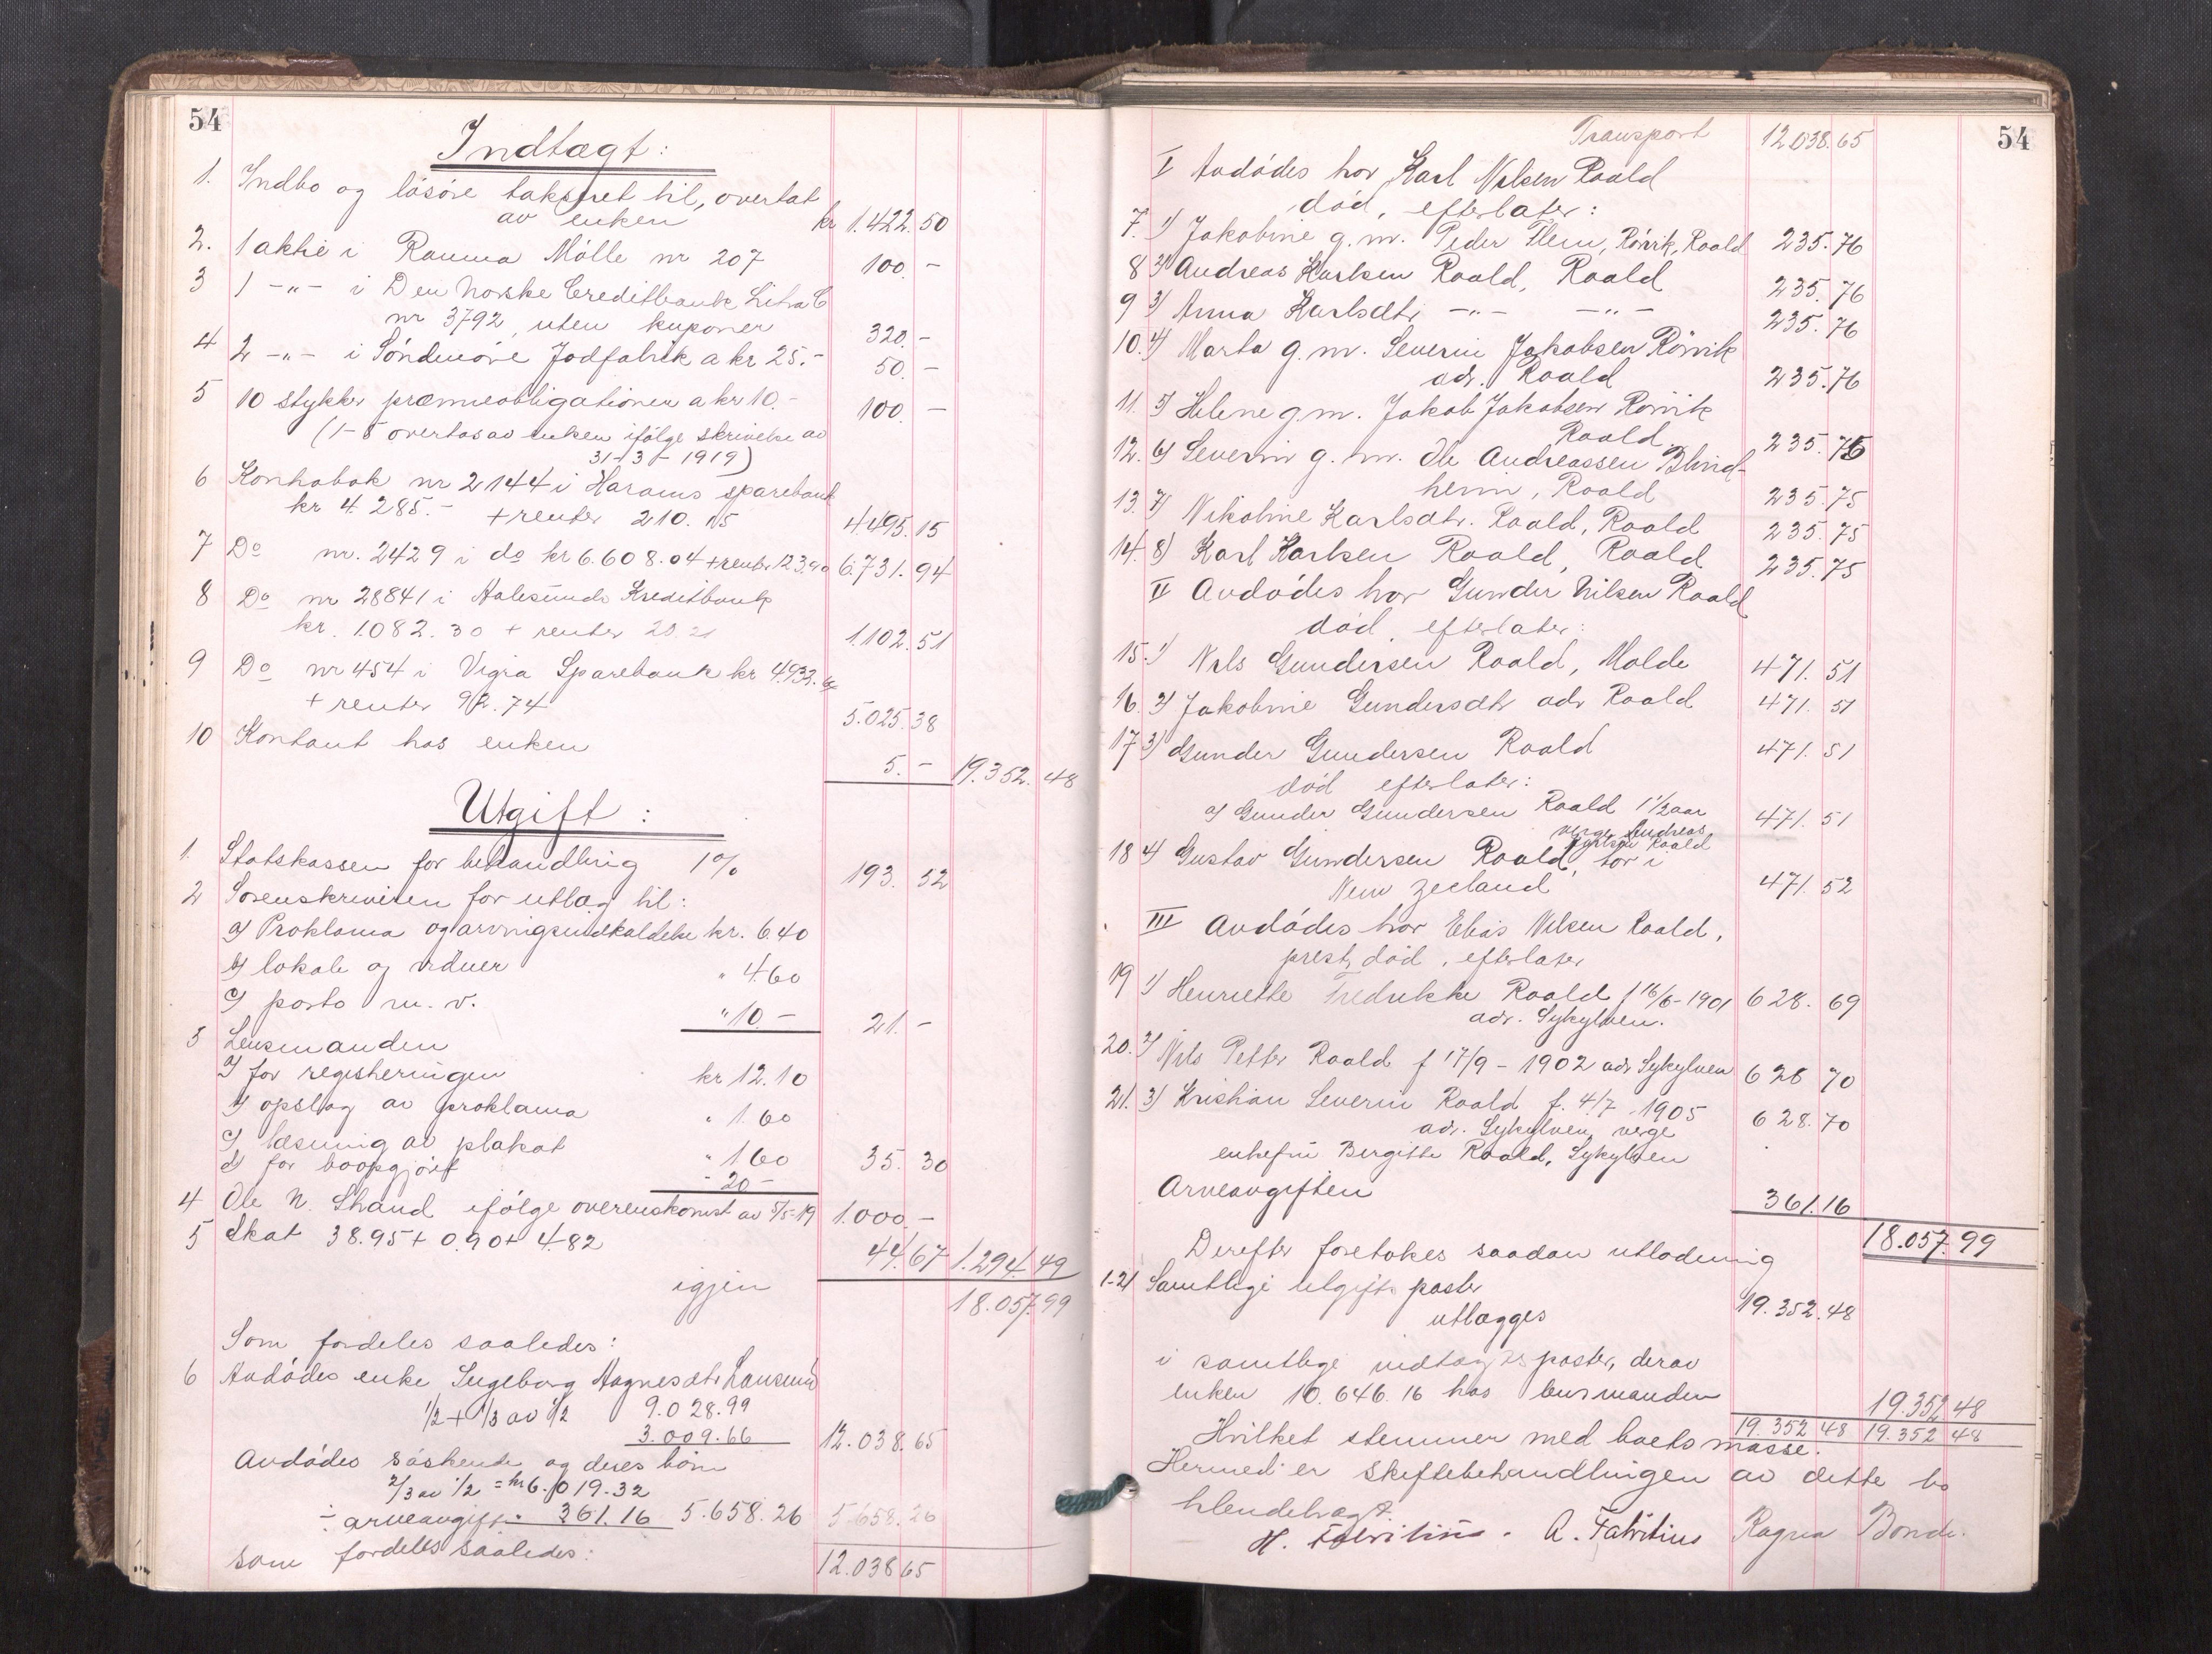 54
Indtægt:
1. Indbo og løsøre taksert til, overtat
av enken kr 1.422.50
2. 1 aktie i Rauma Mølle nr 207 100.-
3 1 -"- i Den Norske Creditbank Litra C
nr 3792, uten kuponer 320.-
4 2 -"- i Søndmøre Jodfabrik a kr 25.- 50.-
5 10 stykker præmieobligationer a kr 10.- 100.-
(1-5 overtas av enken ifølge skrivelse av
31-3-1919)
6 Kontrabok nr 2144 i Harams sparebank
kr 4.285.- + renter 210.15 4.495.15
7 Do nr. 2429 i do kr 6.608.04 + renter 123.90 6.731.94
8 Do nr 28841 i Aalesunds Kreditbank
kr. 1.082.30 + renter 20.21 1.102.51
9 Do nr 454 i Vigra Sparebank kr 4.932.64
+ renter 92.74 5.025.38
10 Kontant hos enken 5.- 19.352.48
Utgift:
1. Statskassen for behandling 1% 193.52
2 Sorenskriveren for utlæg til:
a) Proklama og arvingsindkaldelse kr. 6.40
b) lokale og vidner " 4.60
c) porto m. v. " 10.- 21.-
3 Lensmanden
a) for registreringen kr 12.10
b) opslag av proklama " 1.60
c) læsning av plakat " 1.60 35.30
d) for boopgjøret " 20.-
4 Ole N. Strand ifølge overenskomst av 5/5-19 1.000.-
5 Skat 38.95 + 0.90 + 4.82 44.67 1.294.49
igjen 18.057.99
Som fordeles saaledes:
6 Avdødes enke Ingeborg Magnesdtr
1/2 + 1/3 av 1/2 9.028.99
3.009.66 12.038.65
Avdødes søskende og deres børn
2/3 av 1/2 = kr 6.019.32
÷ arveavgift 361.16 5.658.26 5.658.26
som fordeles saaledes: 12.038.65
54
Transport 12.038.65
I Avdødes bror Karl Nilsen Roald
død, efterlater:
7. 1) Jakobine g. m. Peder Flem, Rørvik, Roald 235.76
8 2) Andreas Karlsen Roald, Roald 235.76
9 3) Anna Karlsdtr -"- -"- 235.76
10. 4) Marta g. m. Severin Jakobsen Rørvik
adr. Roald 235.76
11. 5) Helene g. m. Jakob Jakobsen Rørvik
Roald. 235.75
12. 6) Severine g. m. Ole Andreassen Blind-
heim, Roald 235.75
13. 7) Nikoline Karlsdtr. Roald, Roald 235.75
14. 8) Karl Karlsen Roald, Roald 235.75
II Avdødes bror Gunder Nilsen Roald
død, efterlater:
15. 1) Nils Gundersen Roald, Molde 471.51
16 2) Jakobine Gundersdtr adr Roald 471.51
17 3) Gunder Gundersen Roald 471.51
død efterlater:
a) Gunder Gundersen Roald 1 1/2 aar 471.51
verge Andreas
Karlsen Roald
18 4) Gustav Gundersen Roald, bor i
New Zeeland 471.52
III Avdødes bror Elias Nilsen Roald,
prest, død, efterlater
19 1) Henriette Fredrikke Roald f 16/6-1901 628.69
adr. Sykylven.
20. 2) Nils Petter Roald f 17/9-1902 adr Sykylven 628 70
21. 3) Kristian Severin Roald f. 4/7 1905 628.70
adr. Sykylven, verge
enkefru Bergitte Roald, Sykylven
Arveavgiften 361.16
18.057.99
Derefter foretokes saadan utlodning
1-21 Samtlige utgifts poster
utlægges 19.352.48
i samtlige indtægtsposter, derav
enken 10.646.16 hos lensmanden 19.352.48
19.352 48 19.352 48
Hvilket stemmer med boets masse.
Hermed er skiftebehandlingen av dette bo
tilendebragt.
H. Fabritius. A. Fabritius Ragna Bonde.